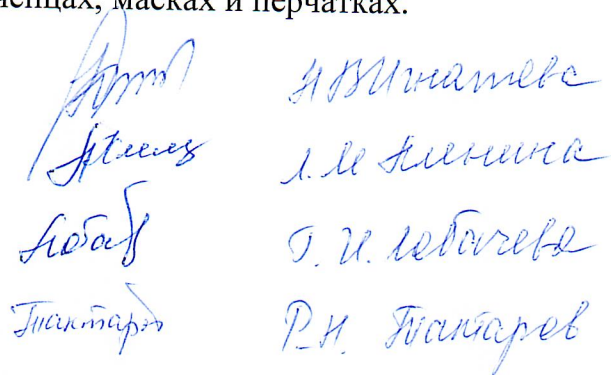 масках и перчатках.
Н В Игнатева
Л. М Пленина
Лобач Г. И. Лобачева
Тактаров Р. Н. Тактаров